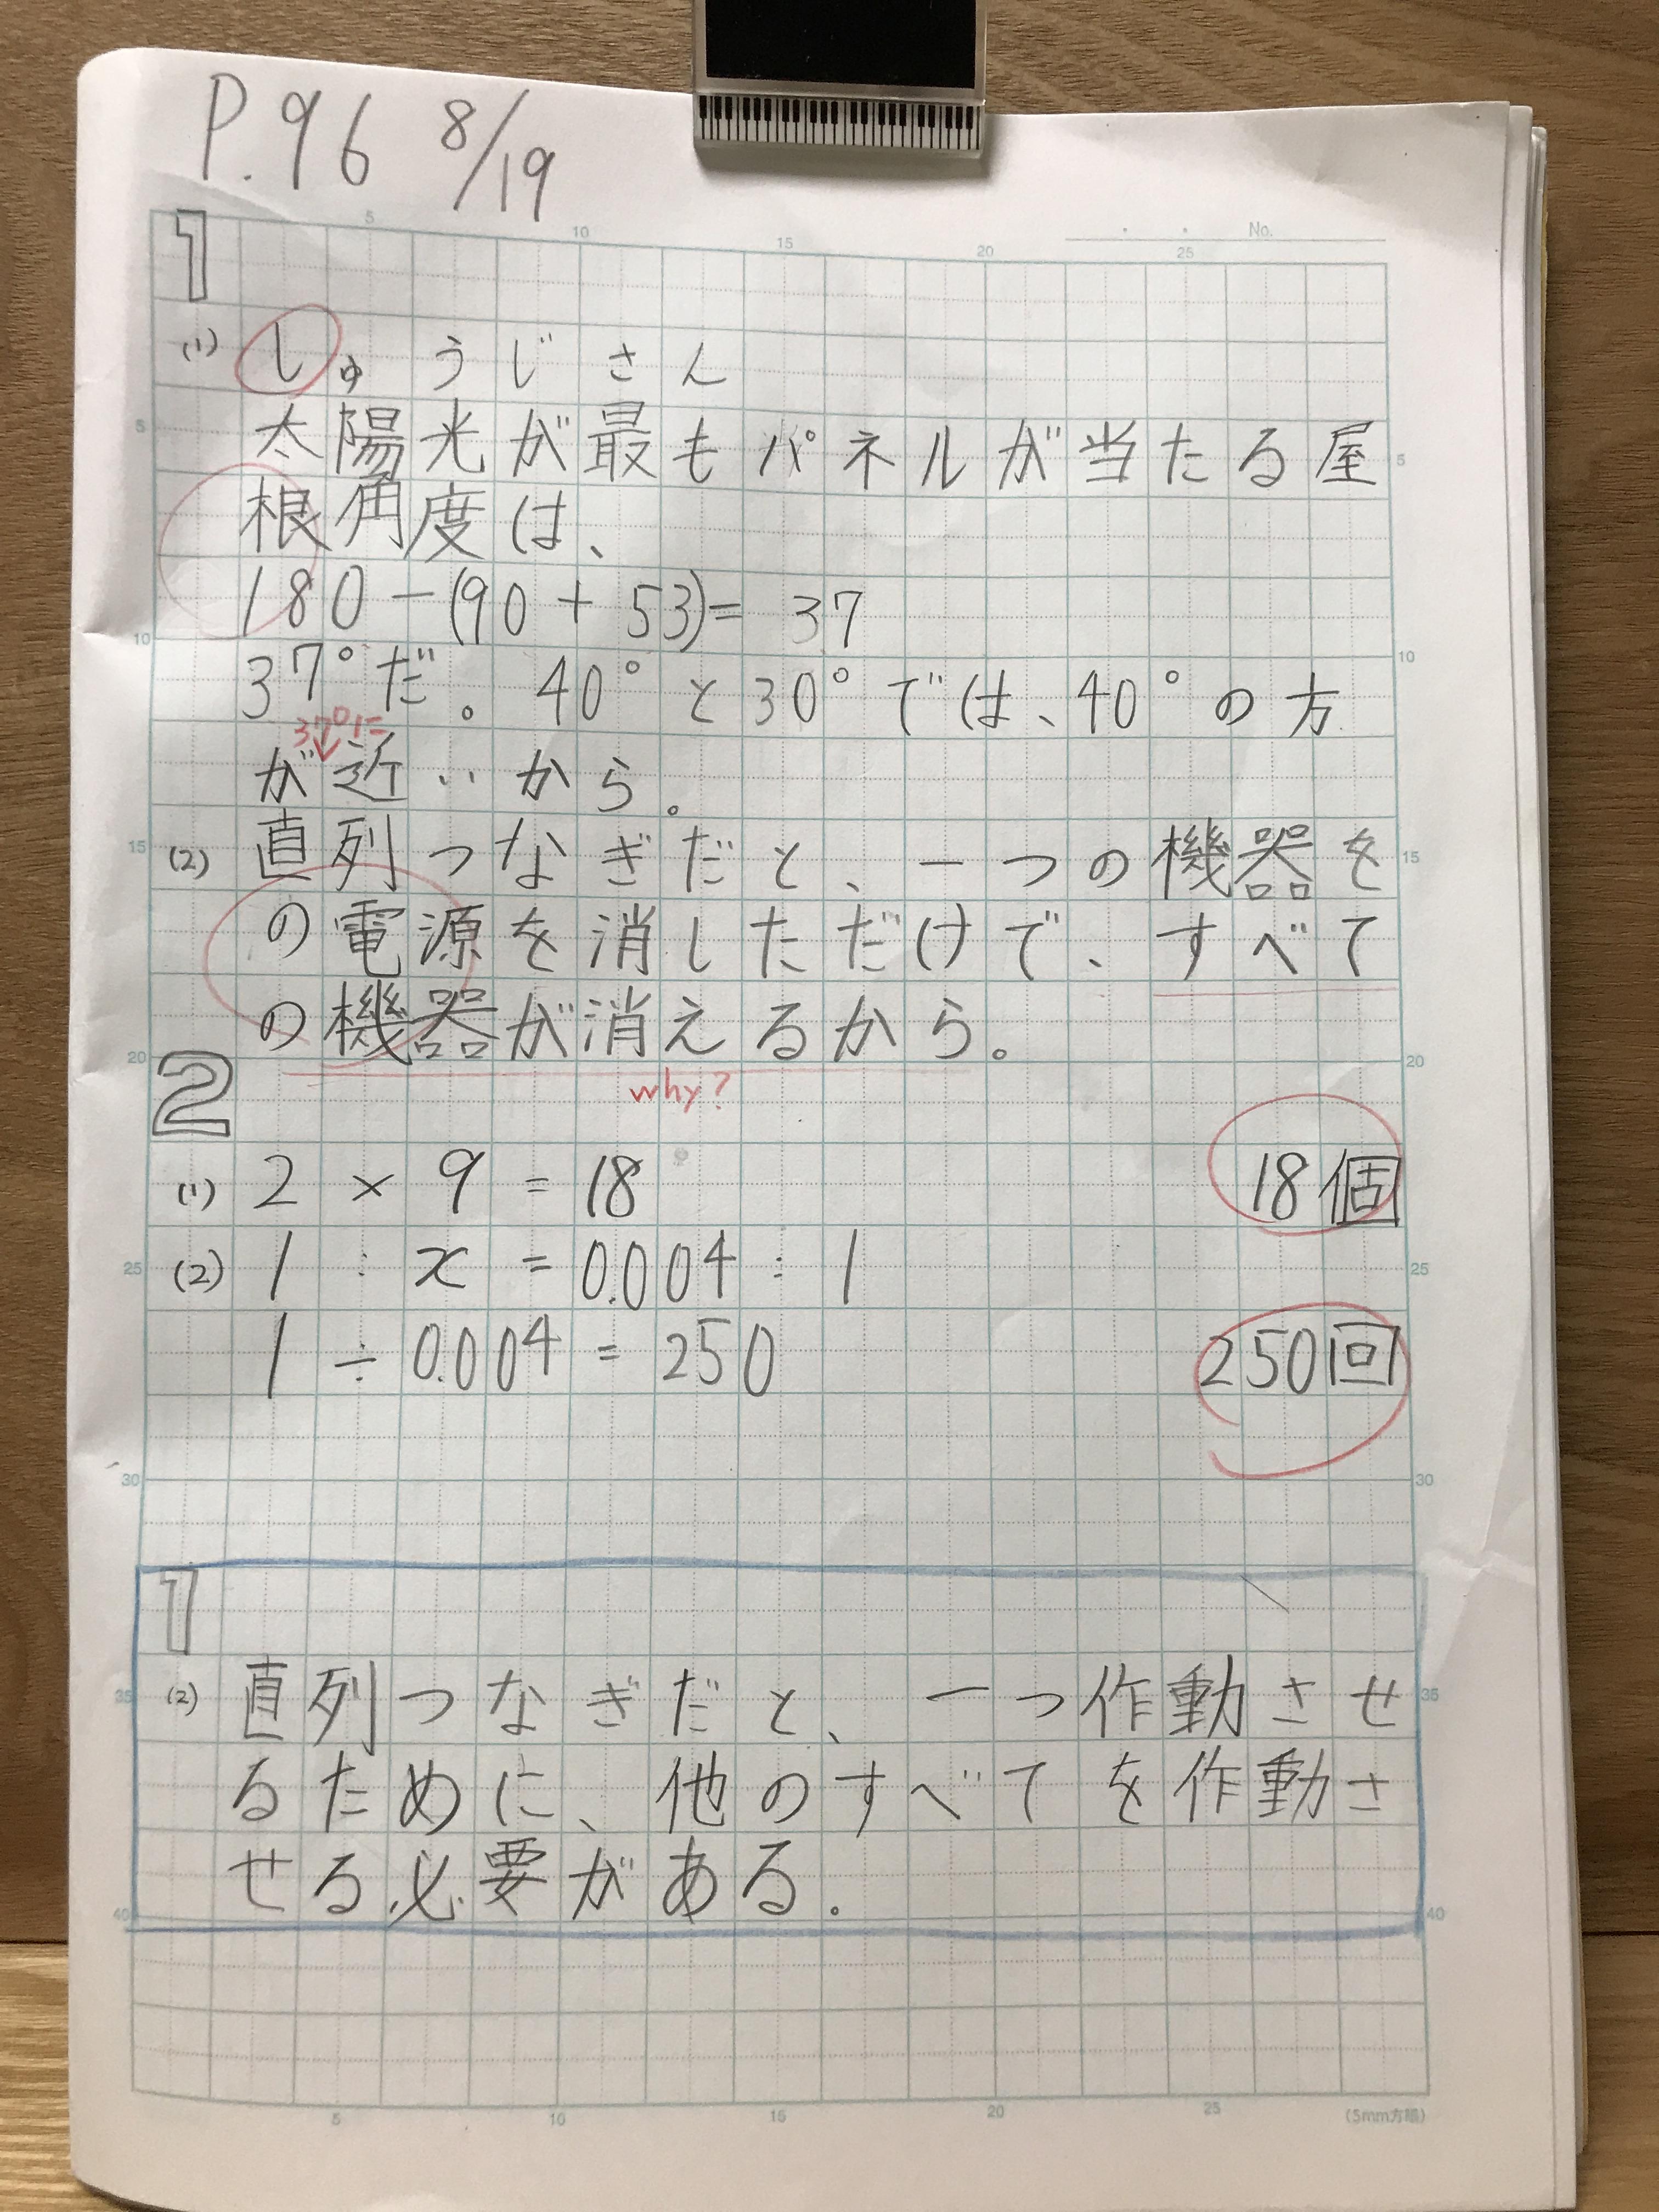 P.96 8/19
No.
1
(1) しゅうじさん
太陽光が最もパネルが当たる屋
根角度は、
180-(90+53)=37
37°だ。40°と30°では、40°の方
37°に
が近いから。
(2) 直列つなぎだと、一つの機器を
の電源を消しただけで、すべて
の機器が消えるから。
why?
2
(1) 2×9=18 18個
(2) 1:x=0.004:1
1÷0.004=250 250回
1
(2) 直列つなぎだと、一つ作動させ
るために、他のすべてを作動さ
せる必要がある.
(5mm方眼)